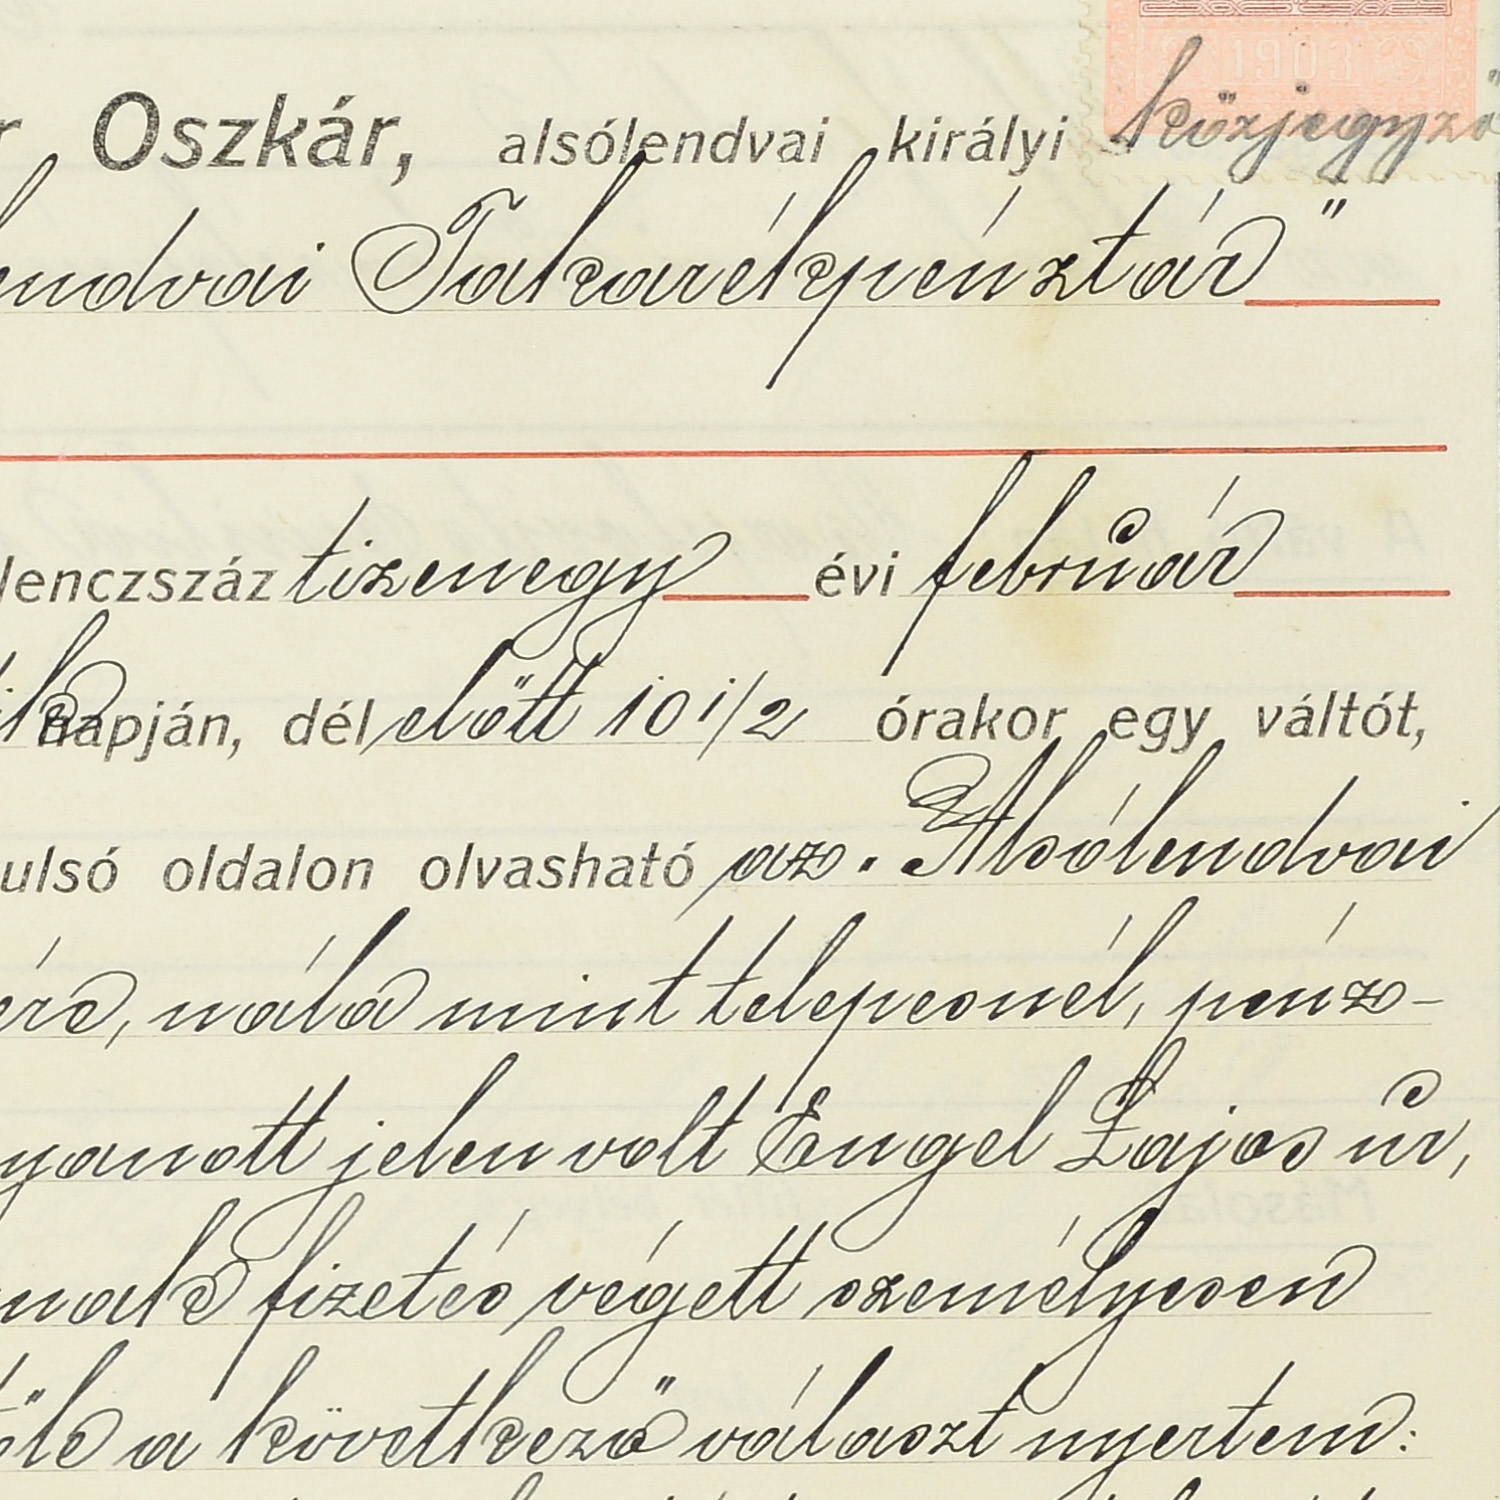 1903
r Oszkár, alsólendvai királyi közjegyző
lendvai Takarékpénztár"
lenczszáz tizenegy évi február
napján, dél előtt 10 1/2 órakor egy váltót,
ulsó oldalon olvasható az „Alsólendvai
ére, nála mint telepesnél, pénz-
yanott jelen volt Engel Lajos úr,
nak fizetés végett személyesen
től a következő választ nyertem: